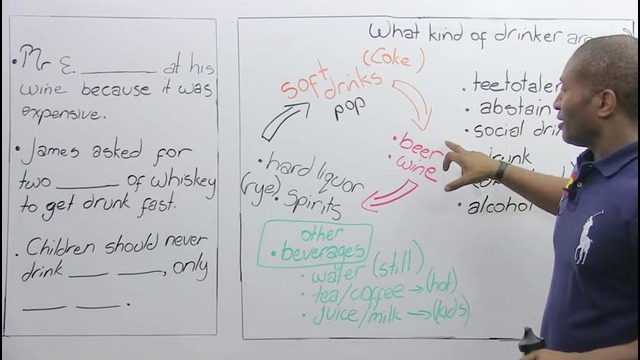 • Mr E. ________ at his
wine because it was
expensive.
• James asked for
two ______ of whiskey
to get drunk fast.
• Children should never
drink ____ ____, only
____ ____.
What kind of drinker are
(Coke)
soft drinks
pop
• beer
• wine
• hard liquor
(rye) • spirits
other
• beverages
• water (still)
• tea/coffee → (hot)
• juice/milk → (kids)
• teetotaler
• abstain
• social
• alcohol